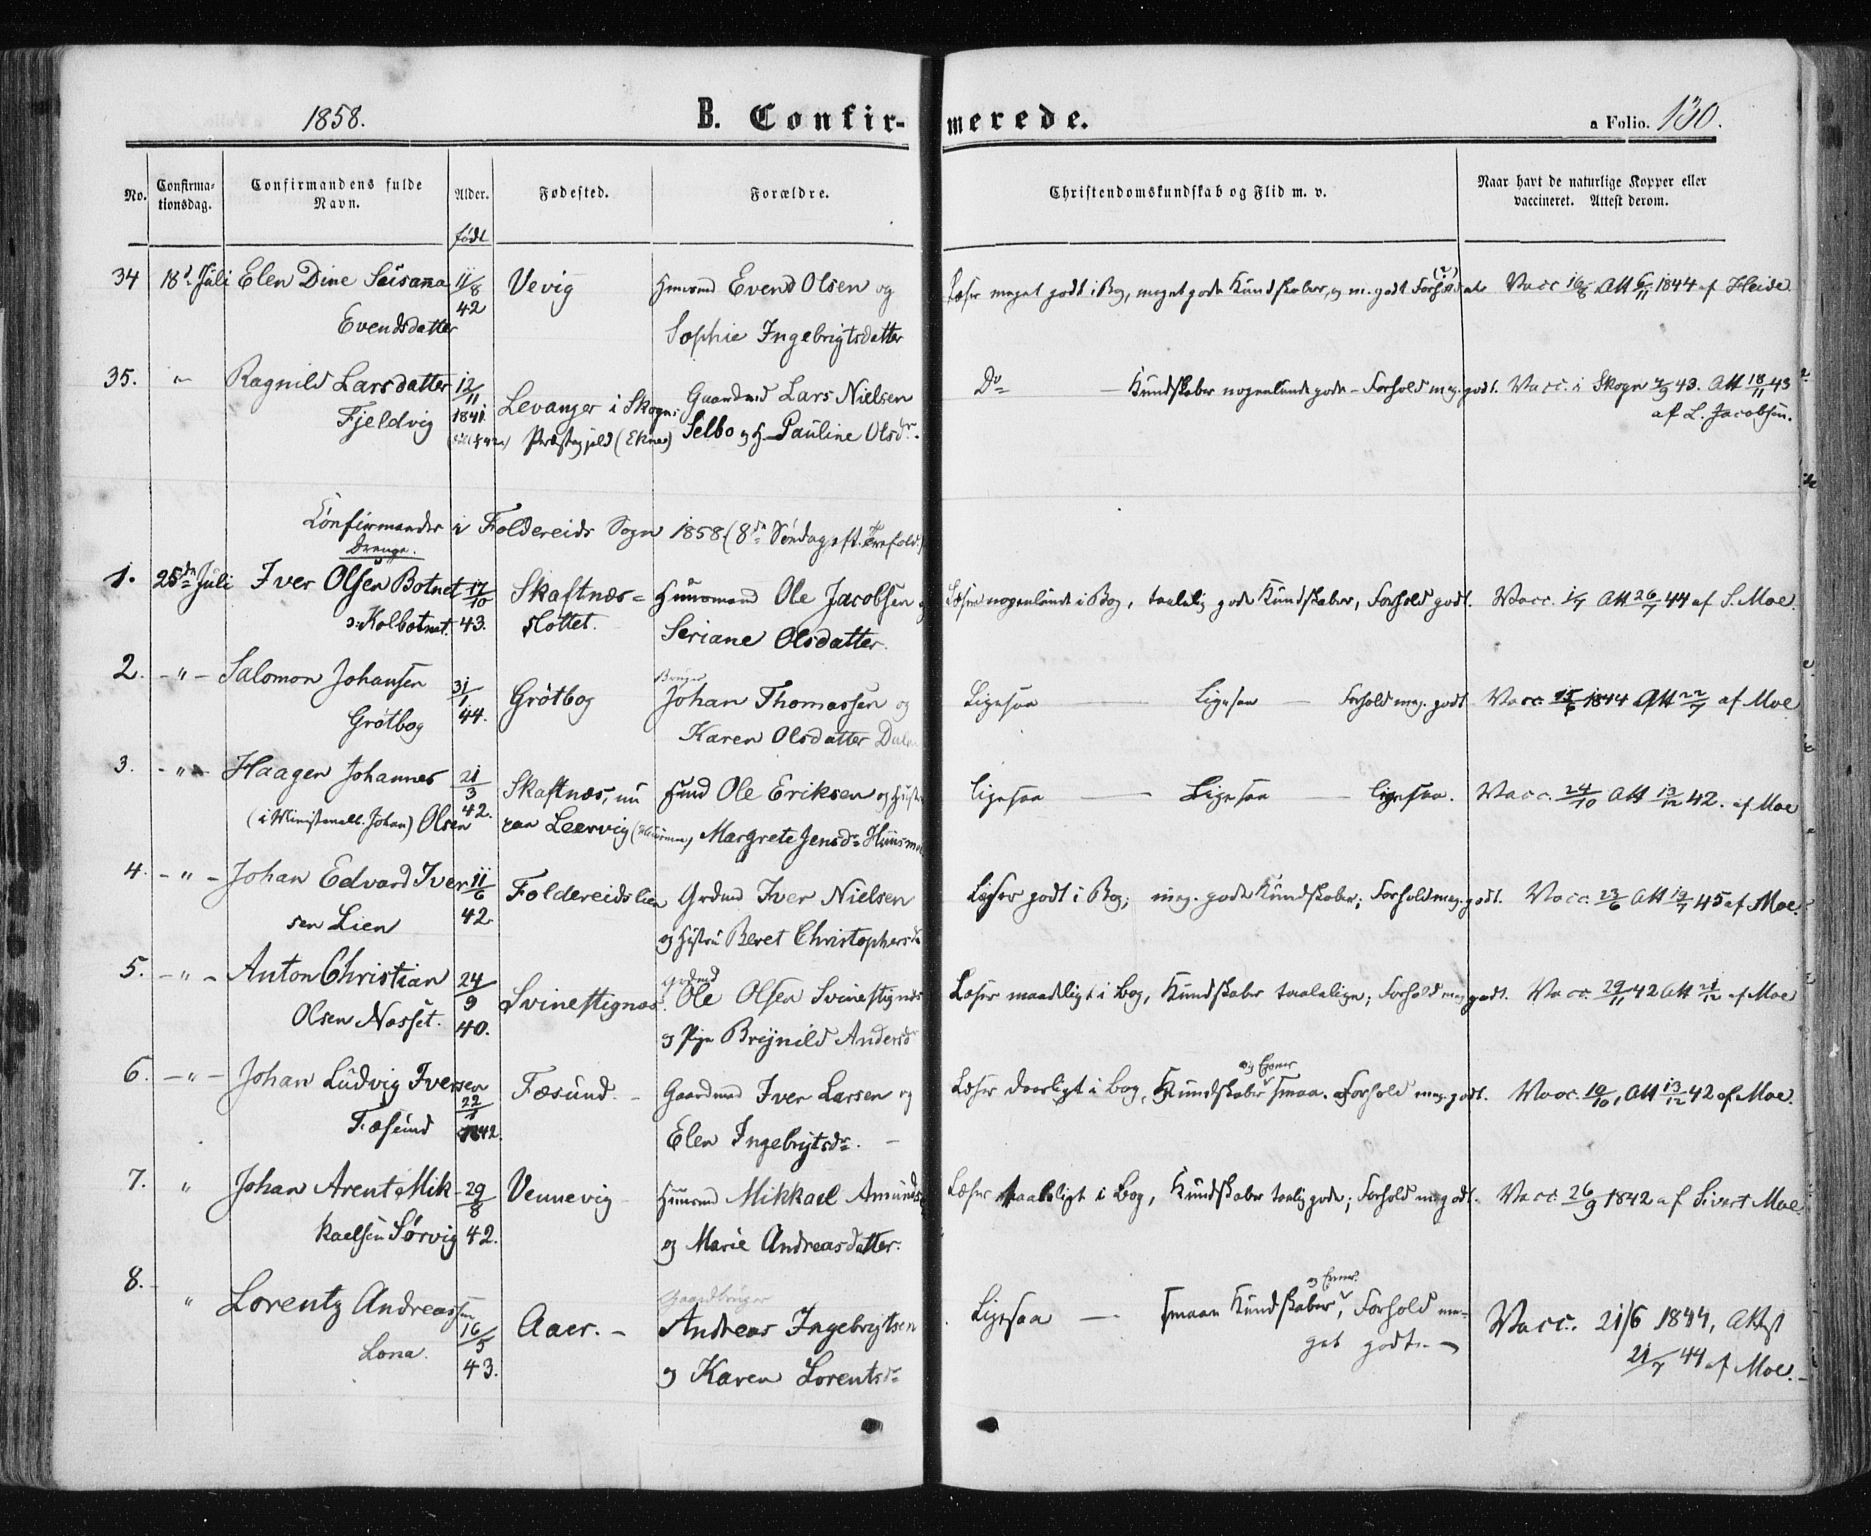 1858.
B. Confirmerede.
a Folio. 130.
No.
Confirmationsdag.
Confirmandens fulde Navn.
Alder.
født
Fødested.
Forældre.
Christendomskundskab og Flid m. v.
Naar havt de naturlige Kopper eller vaccineret. Attest derom.
34 18d Juli Elen Dine Susanna 11/8 Vevig Huusmd Evend Olsen og Læser meget godt i Bog, meget gode Kundskaber, og m. godt Forhold Vacc 16/8 Att 6/11 1844 af Heide.
Evendsdatter 42 Sophie Ingebrigtsdatter
35. " Ragnild Larsdatter 12/11 Levanger i Skogns Gaardmd Lars Nielsen Do — Kundskaber nogenlunde gode - Forhold meg. godt. Vacc. i Skogn 2/9 43. Att 18/11 43
Fjeldvig 1841 Præstegjeld (Eknes) Selbo og H Pauline Olsdr. af L. Jacobsen.
Confirmander i Foldereids Sogn 1858 (8de Søndag eft. Trefold.)
Drenge.
1. 25de Juli Iver Olsen Botnet 17/10 Skaftnæs= Huusmand Ole Jacobsen og Læser nogenlunde i Bog, taalelig gode Kundskaber, Forhold godt. Vacc. 1/7 Att 26/7 44 af S. Moe.
ɔ: Kolbotnet. 43. slottet. Seriane Olsdatter.
2. - " - Salomon Johansen 31/1 Grøtbog Bruger Johan Thomassen og Ligesaa — Ligesaa — Forhold meg. godt Vacc 15/6 1844 Att 22/7 af Moe
Grøtbog 44. Karen Olsdatter
3. - " - Haagen Johannes 21/3 Skaftnæs, nu Huusmd Ole Eriksen og Hustru Ligesaa — Ligesaa — ligesaa. Vacc. 24/10 Att 13/12 42. af Moe
(i Ministerialb. Johan) Olsen 42. paa Leervig Margrete Jensdr
4. - " - Johan Edvard Iver 11/6 Foldereidslien Grdmd Iver Nielsen Læser godt i Bog; meg. gode Kundskaber; Forhold meg. godt. Vacc. 23/6 Att 19/7 45 af Moe.
sen Lien 42 og Hustru Beret Christophersdr
5. - " - Anton Christian 24/9 Svinestignæs. Grdmd Ole Olsen Svinestignæs Læser maadeligt i Bog, Kundskaber taalelige; Forhold meg. godt. Vacc. 29/11 42 Att 21/12 af Moe
Olsen Næsset. 40. og Pige Brynild Andersdr
6. - " - Johan Ludvig Iversen 22/1 Fæsund. Gaardmd Iver Larsen og Læser daarligt i Bog, Kundskaber og Evner smaa. Forhold meg. godt. Vacc. 10/10, Att 13/12 42 af Moe.
Fæsund 1842. Elen Ingebrigtsdr. -
7. " Johan Arent Mik- 29/8 Vennevig Huusmd Mikkael Amunds Læser taaleligt i Bog, Kundskaber taalig gode; Forhold meg. godt. Vacc 26/9 1842 af Sivert Moe.
kaelsen Sørvig 42. og Marie Andreasdatter.
8. " Lorentz Andreassen 16/5 Aaer. - Gaardbruger Andreas Ingebrigtsen Ligesaa — smaae Kundskaber og Evner, Forhold me- Vacc. 21/6 1844, Attest
Lona. 43. og Karen Lorentsdr get godt. - 21/7 44 af Moe.